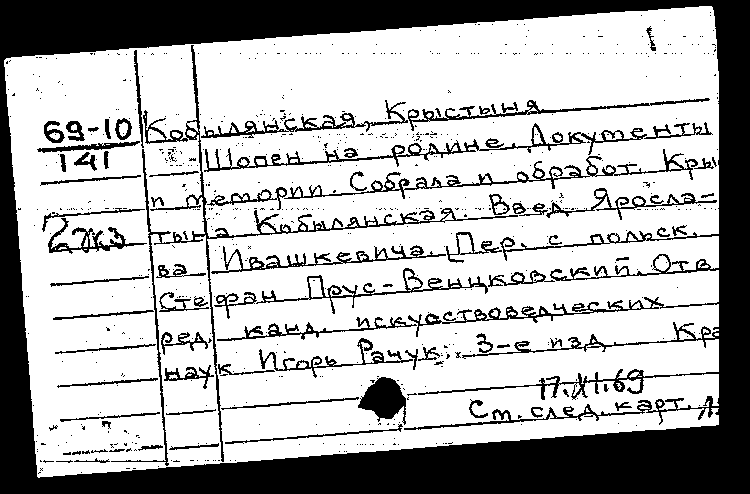 1
69-10
141
2 экз
Кобылянская, Крыстына
Шопен на родине. Документы
и мемории. Собрала и обработ. Кры
тына Кобылянская. Введ. Яросла-
ва Ивашкевича. [Пер. с польск.
Стефан Прус-Венцковский. Отв
ред. канд. искусствоведческих
наук Игорь Рачук. 3-е изд. Кра
17.XI.69
См. след. карт.